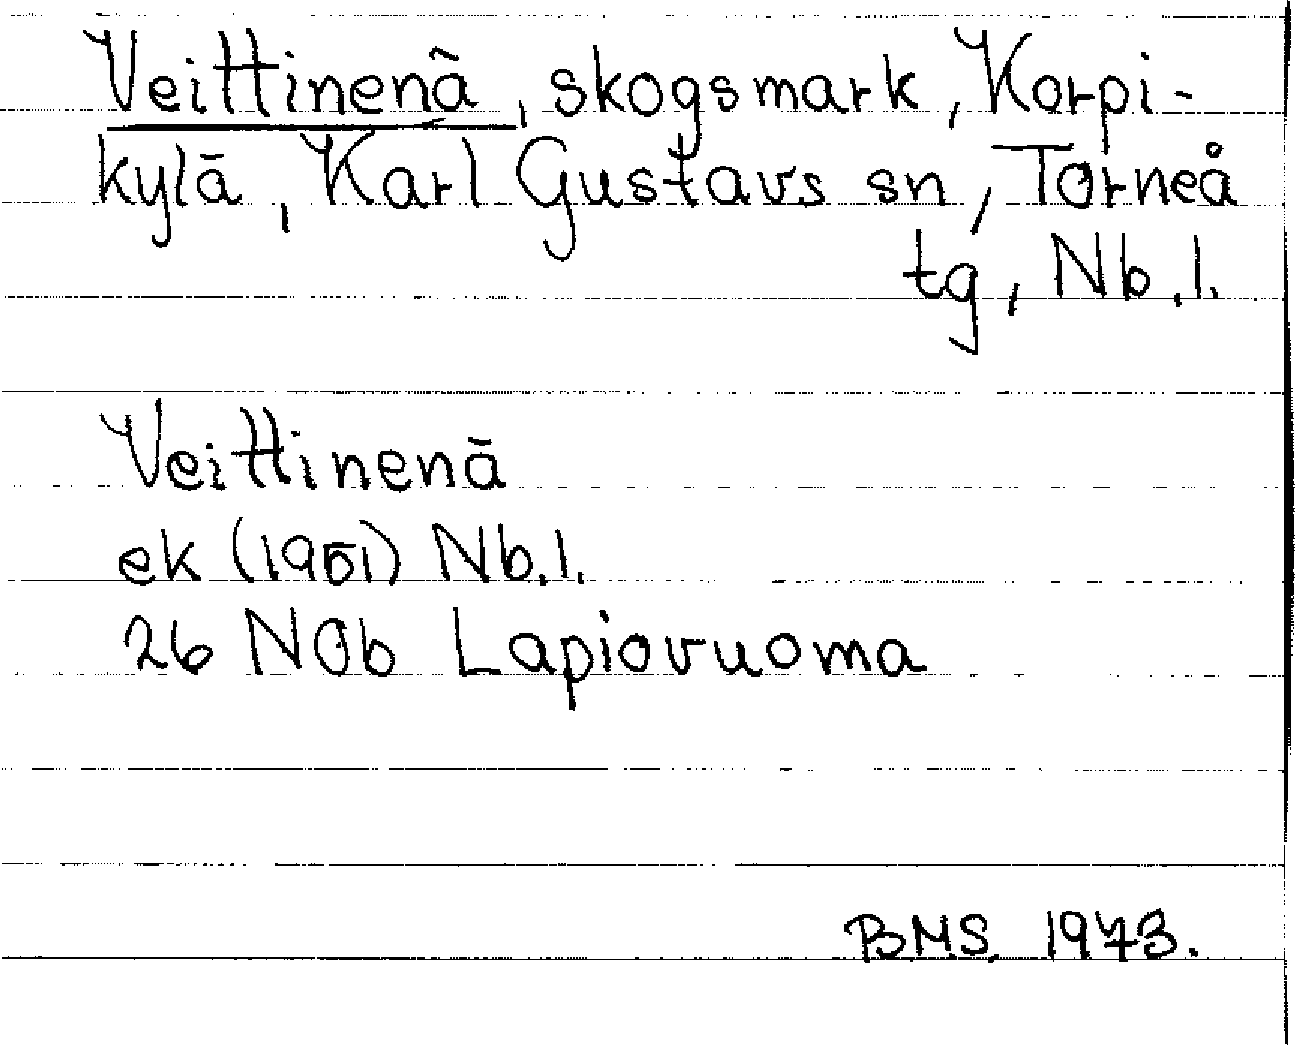 Veittinenä, skogsmark, Korpi-
kylä, Karl Gustavs sn, Torneå
tg, Nb.l.
Veittinenä
ek (1961) Nb.l.
26 NOb Lapiovuoma
B.M.S. 1973.